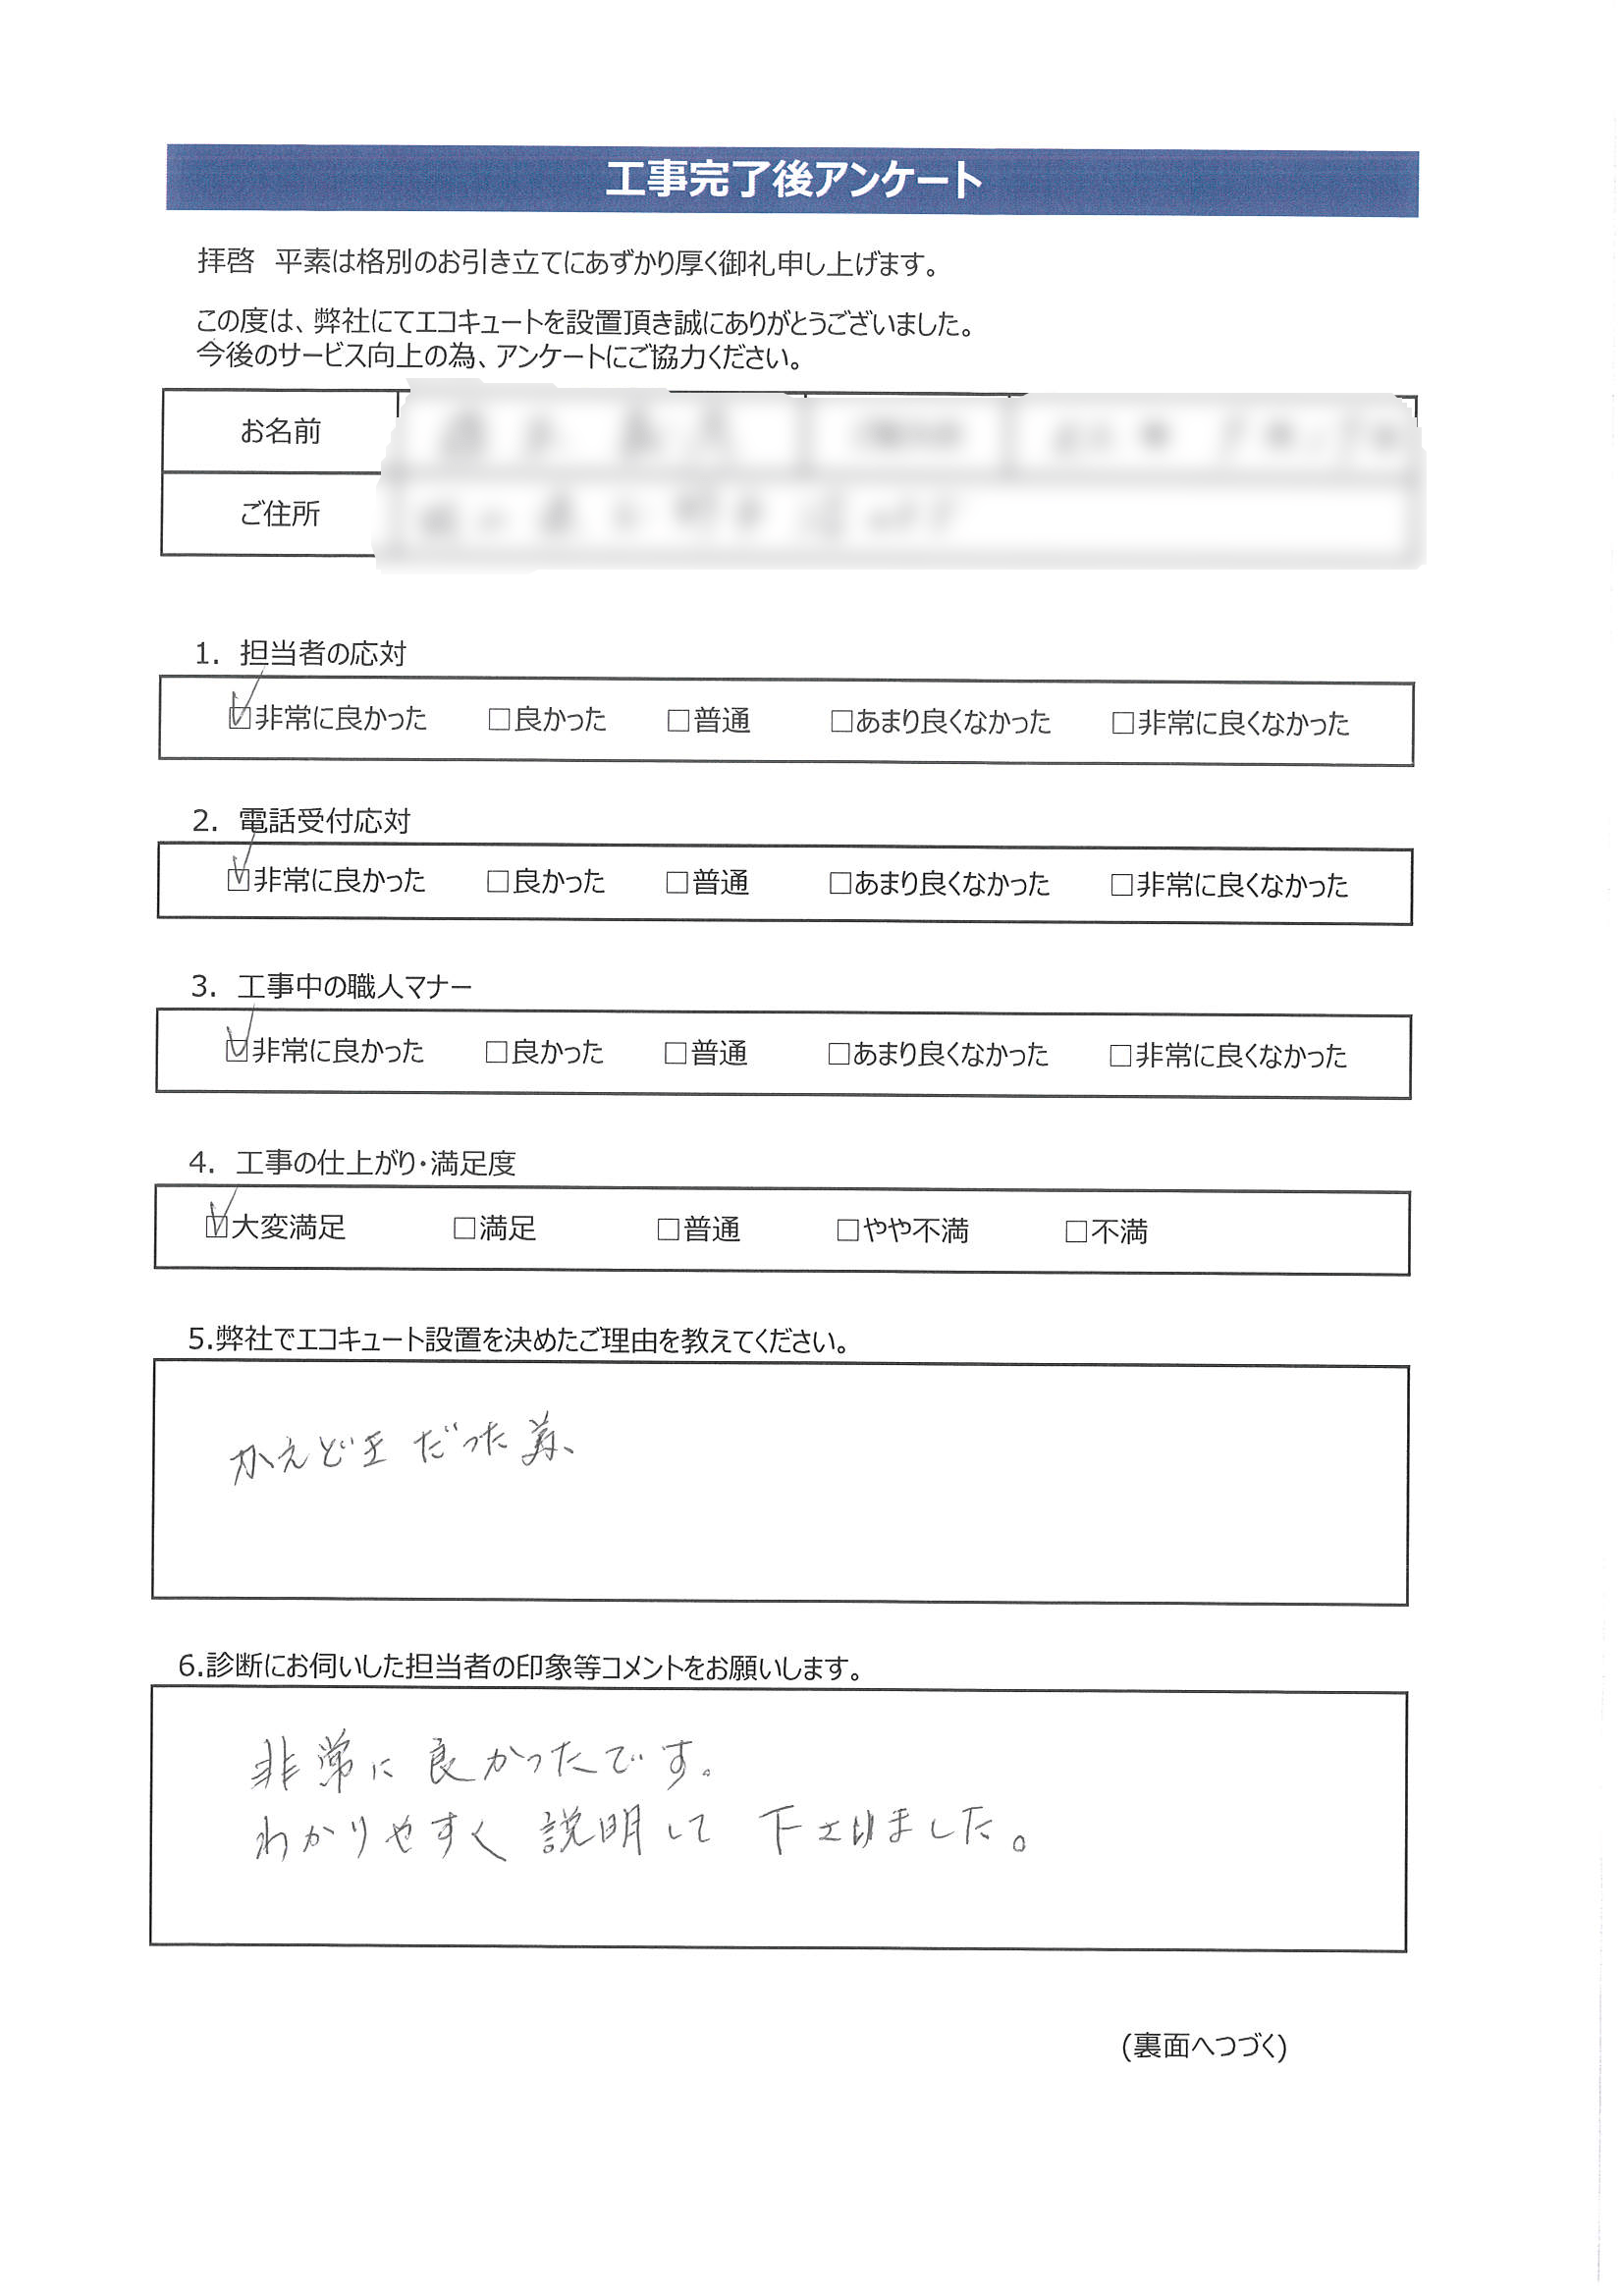 工事完了後アンケート
拝啓　平素は格別のお引き立てにあずかり厚く御礼申し上げます。
この度は、弊社にてエコキュートを設置頂き誠にありがとうございました。
今後のサービス向上の為、アンケートにご協力ください。
お名前
ご住所
1.　担当者の応対
☑非常に良かった　□良かった　□普通　□あまり良くなかった　□非常に良くなかった
2.　電話受付応対
☑非常に良かった　□良かった　□普通　□あまり良くなかった　□非常に良くなかった
3.　工事中の職人マナー
☑非常に良かった　□良かった　□普通　□あまり良くなかった　□非常に良くなかった
4.　工事の仕上がり・満足度
☑大変満足　□満足　□普通　□やや不満　□不満
5.弊社でエコキュート設置を決めたご理由を教えてください。
かえどきだった為、
6.診断にお伺いした担当者の印象等コメントをお願いします。
非常に良かったです。
わかりやすく説明して下さりました。
(裏面へつづく)